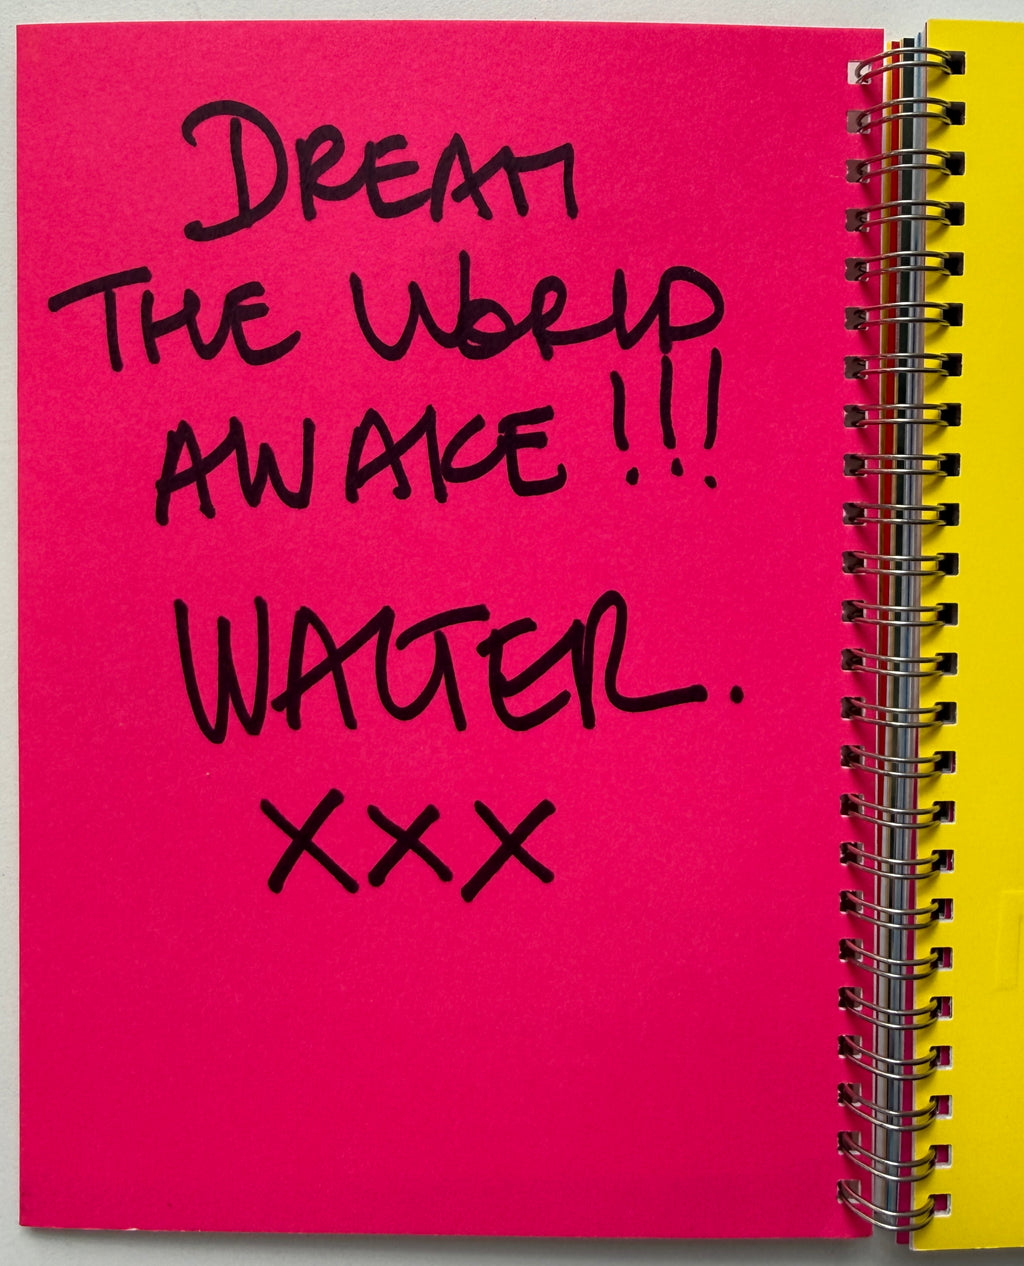 DREAM
THE WORLD
AWAKE!!!
WALTER.
XXX